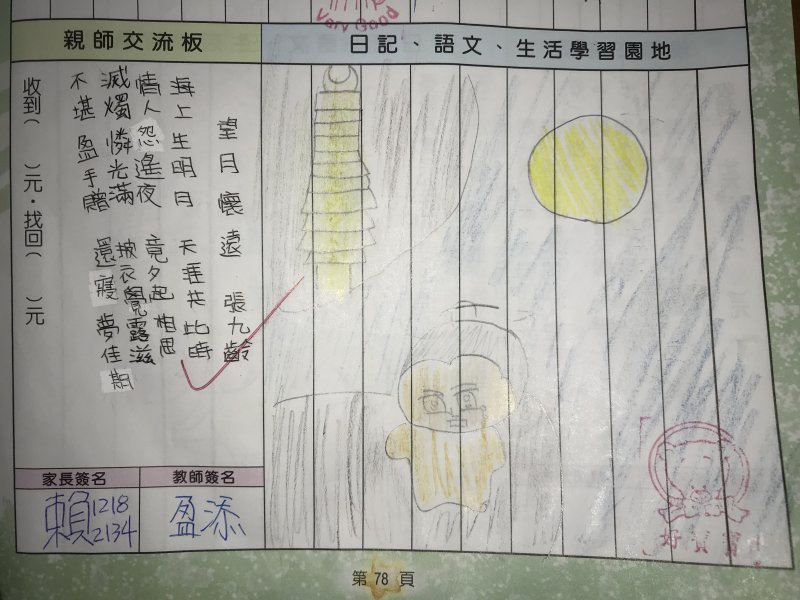 Very Good
親師交流板
日記、語文、生活學習園地
望月懷遠 張九齡
海上生明月 天涯共此時
情人怨遙夜 竟夕起相思
滅燭憐光滿 披衣覺露滋
不堪盈手贈 還寢夢佳期
收到( )元．找回( )元
家長簽名
教師簽名
賴 1218 2134
盈添
好寶寶
第 78 頁